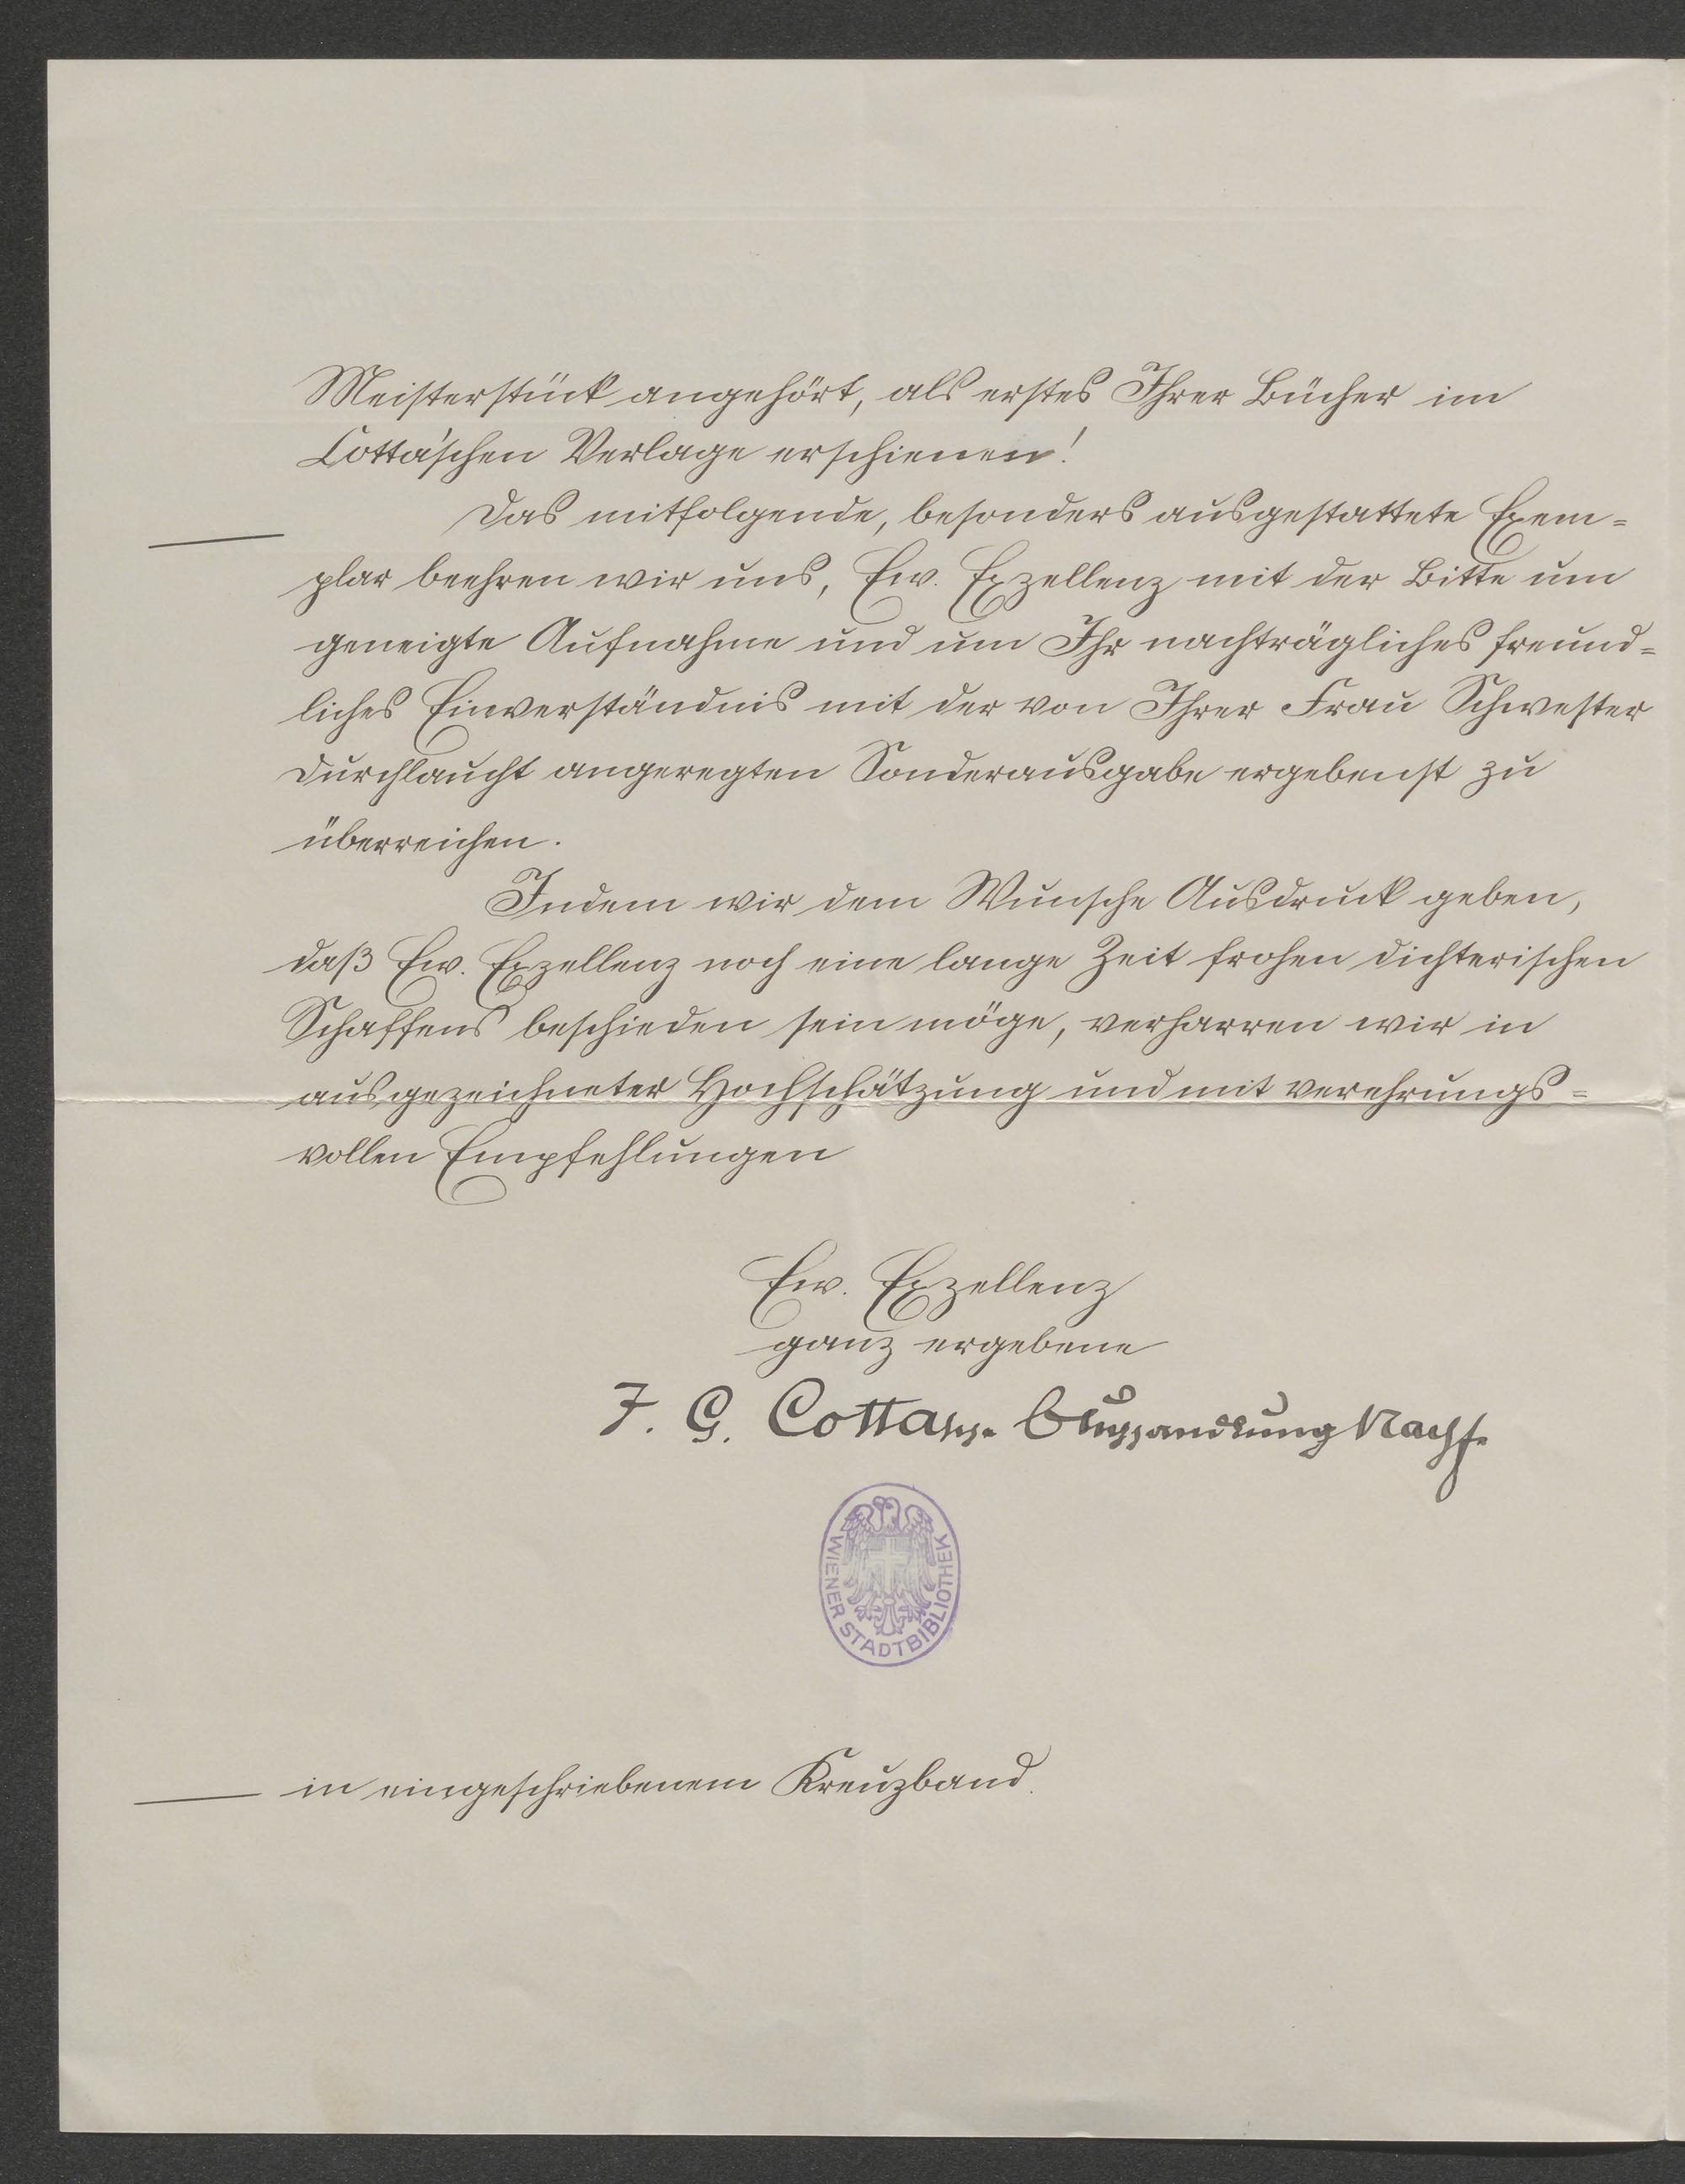 Meisterstück angehört, als erstes Ihrer Bücher im
Cotta'schen Verlage erschienen!
Das mitfolgende, besonders ausgestattete Exem-
plar beehren wir uns, Ew. Exzellenz mit der Bitte um
geneigte Aufnahme und um Ihr nachträgliches freund-
liches Einverständnis mit der von Ihrer Frau Schwester
Durchlaucht angeregten Sonderausgabe ergebenst zu
überreichen.
Indem wir dem Wunsche Ausdruck geben,
daß Ew. Exzellenz noch eine lange Zeit frohen dichterischen
Schaffens beschieden sein möge, verharren wir in
ausgezeichneter Hochschätzung und mit verehrungs-
vollen Empfehlungen
Ew. Exzellenz
ganz ergebene
J. G. Cotta'sche Buchhandlung Nachf.
WIENER STADTBIBLIOTHEK
in eingeschriebenem Kreuzband.